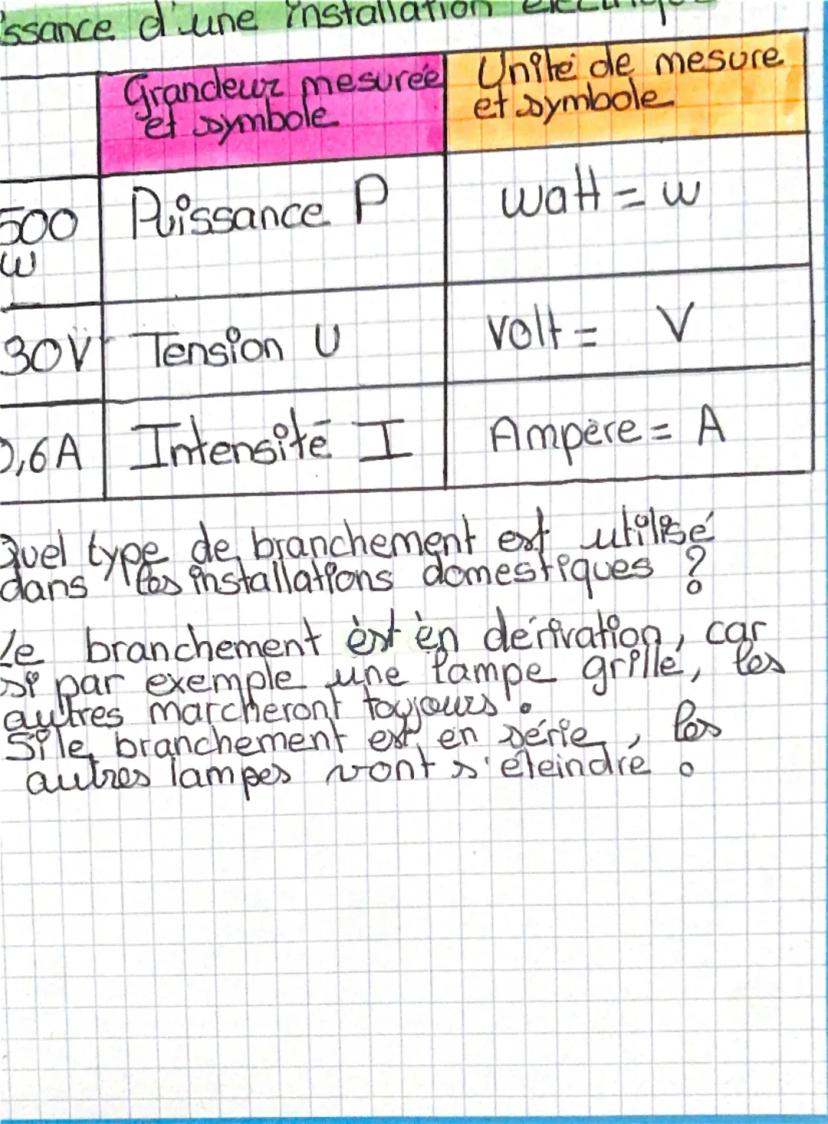 ssance d'une installation électrique
Grandeur mesurée
et symbole
Unité de mesure
et symbole
500
W
Puissance P
watt = w
30V
Tension U
Volt = V
0,6A
Intensité I
Ampère = A
Quel type de branchement est utilisé
dans les installations domestiques ?
Le branchement est en dérivation, car
si par exemple une lampe grille, les
autres marcheront toujours.
Si le branchement est en série, les
autres lampes vont s'éteindre.